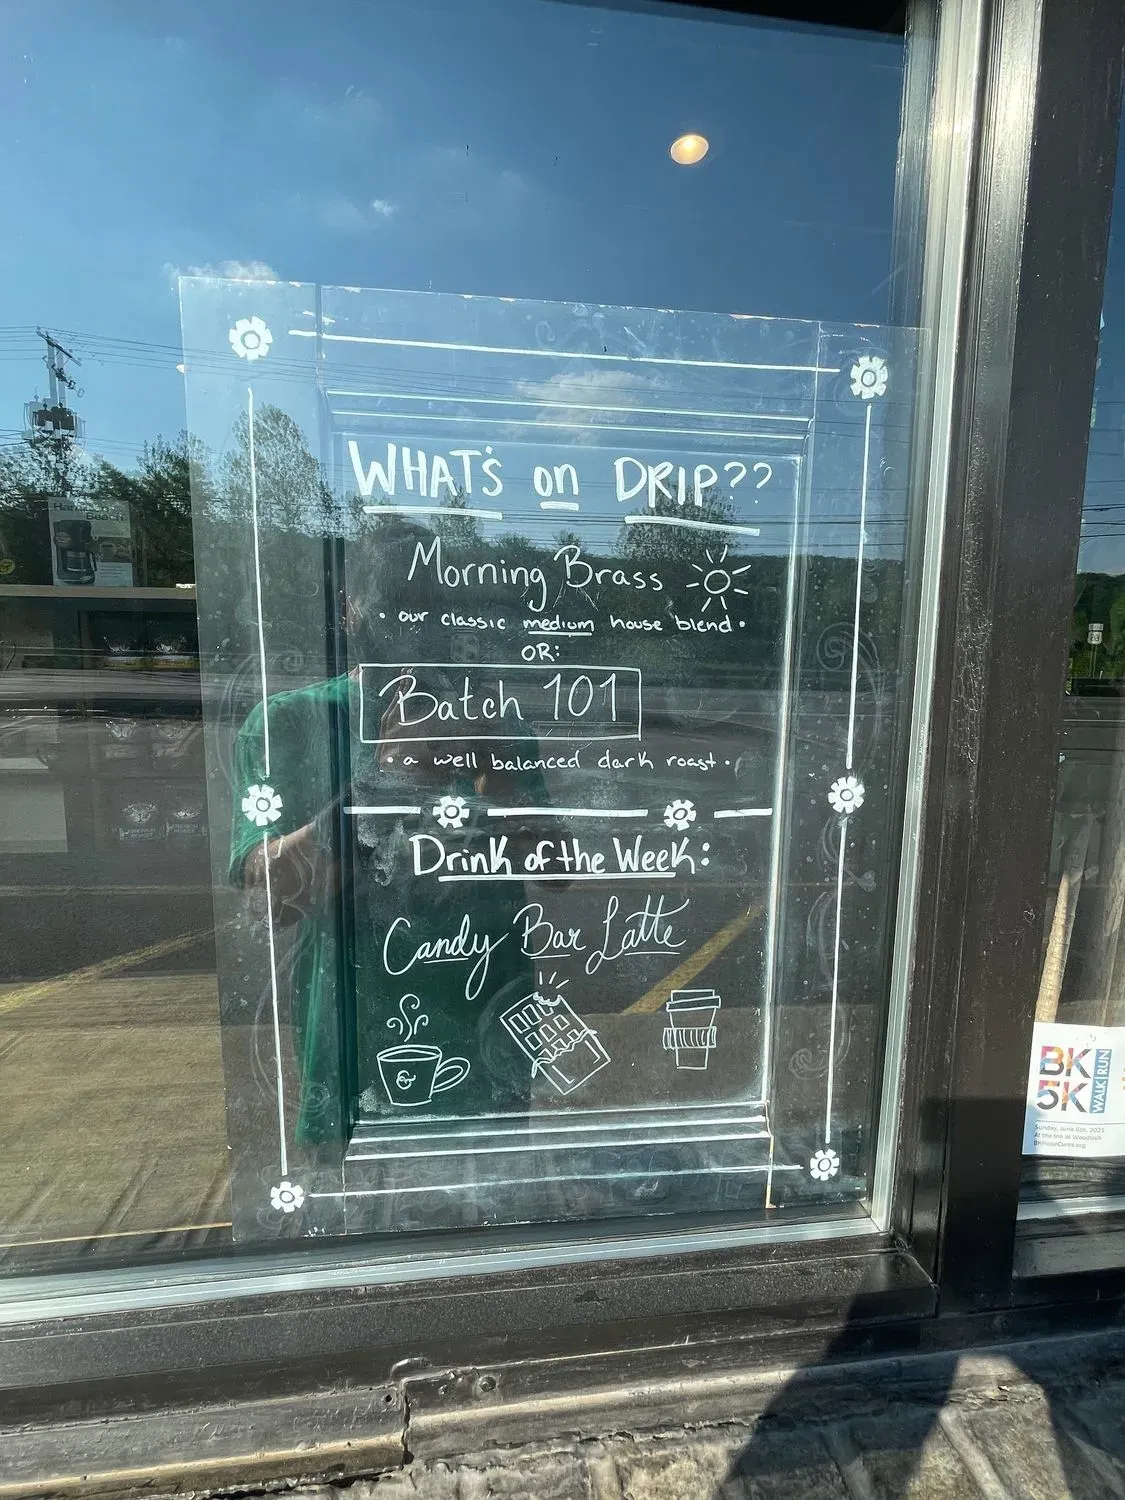 WHAT'S on DRIP??
Morning Brass
• our classic medium house blend •
OR:
Batch 101
• a well balanced dark roast •
Drink of the Week:
Candy Bar Latte
BK
5K
WALK RUN
Sunday, June 6th, 2021
At the Inn at Woodloch
BKHopeCures.org